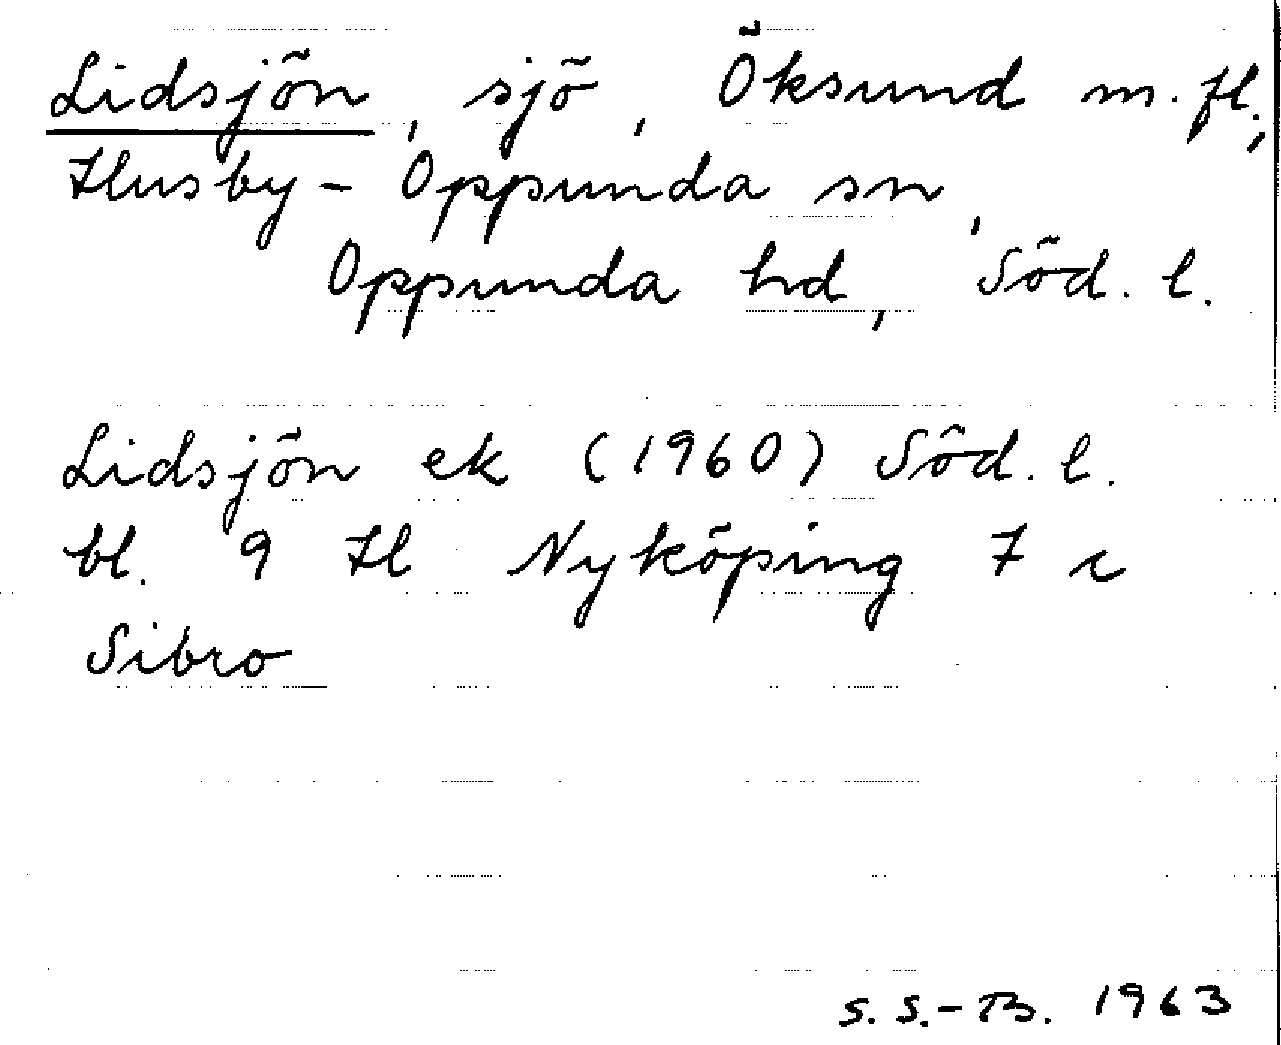 Lidsjön, sjö, Öksund m.fl.,
Husby-Oppunda sn,
Oppunda hd, Söd. l.
Lidsjön ek (1960) Söd. l.
bl. 9 H Nyköping 7 c
Sibro
S. S.-B. 1963